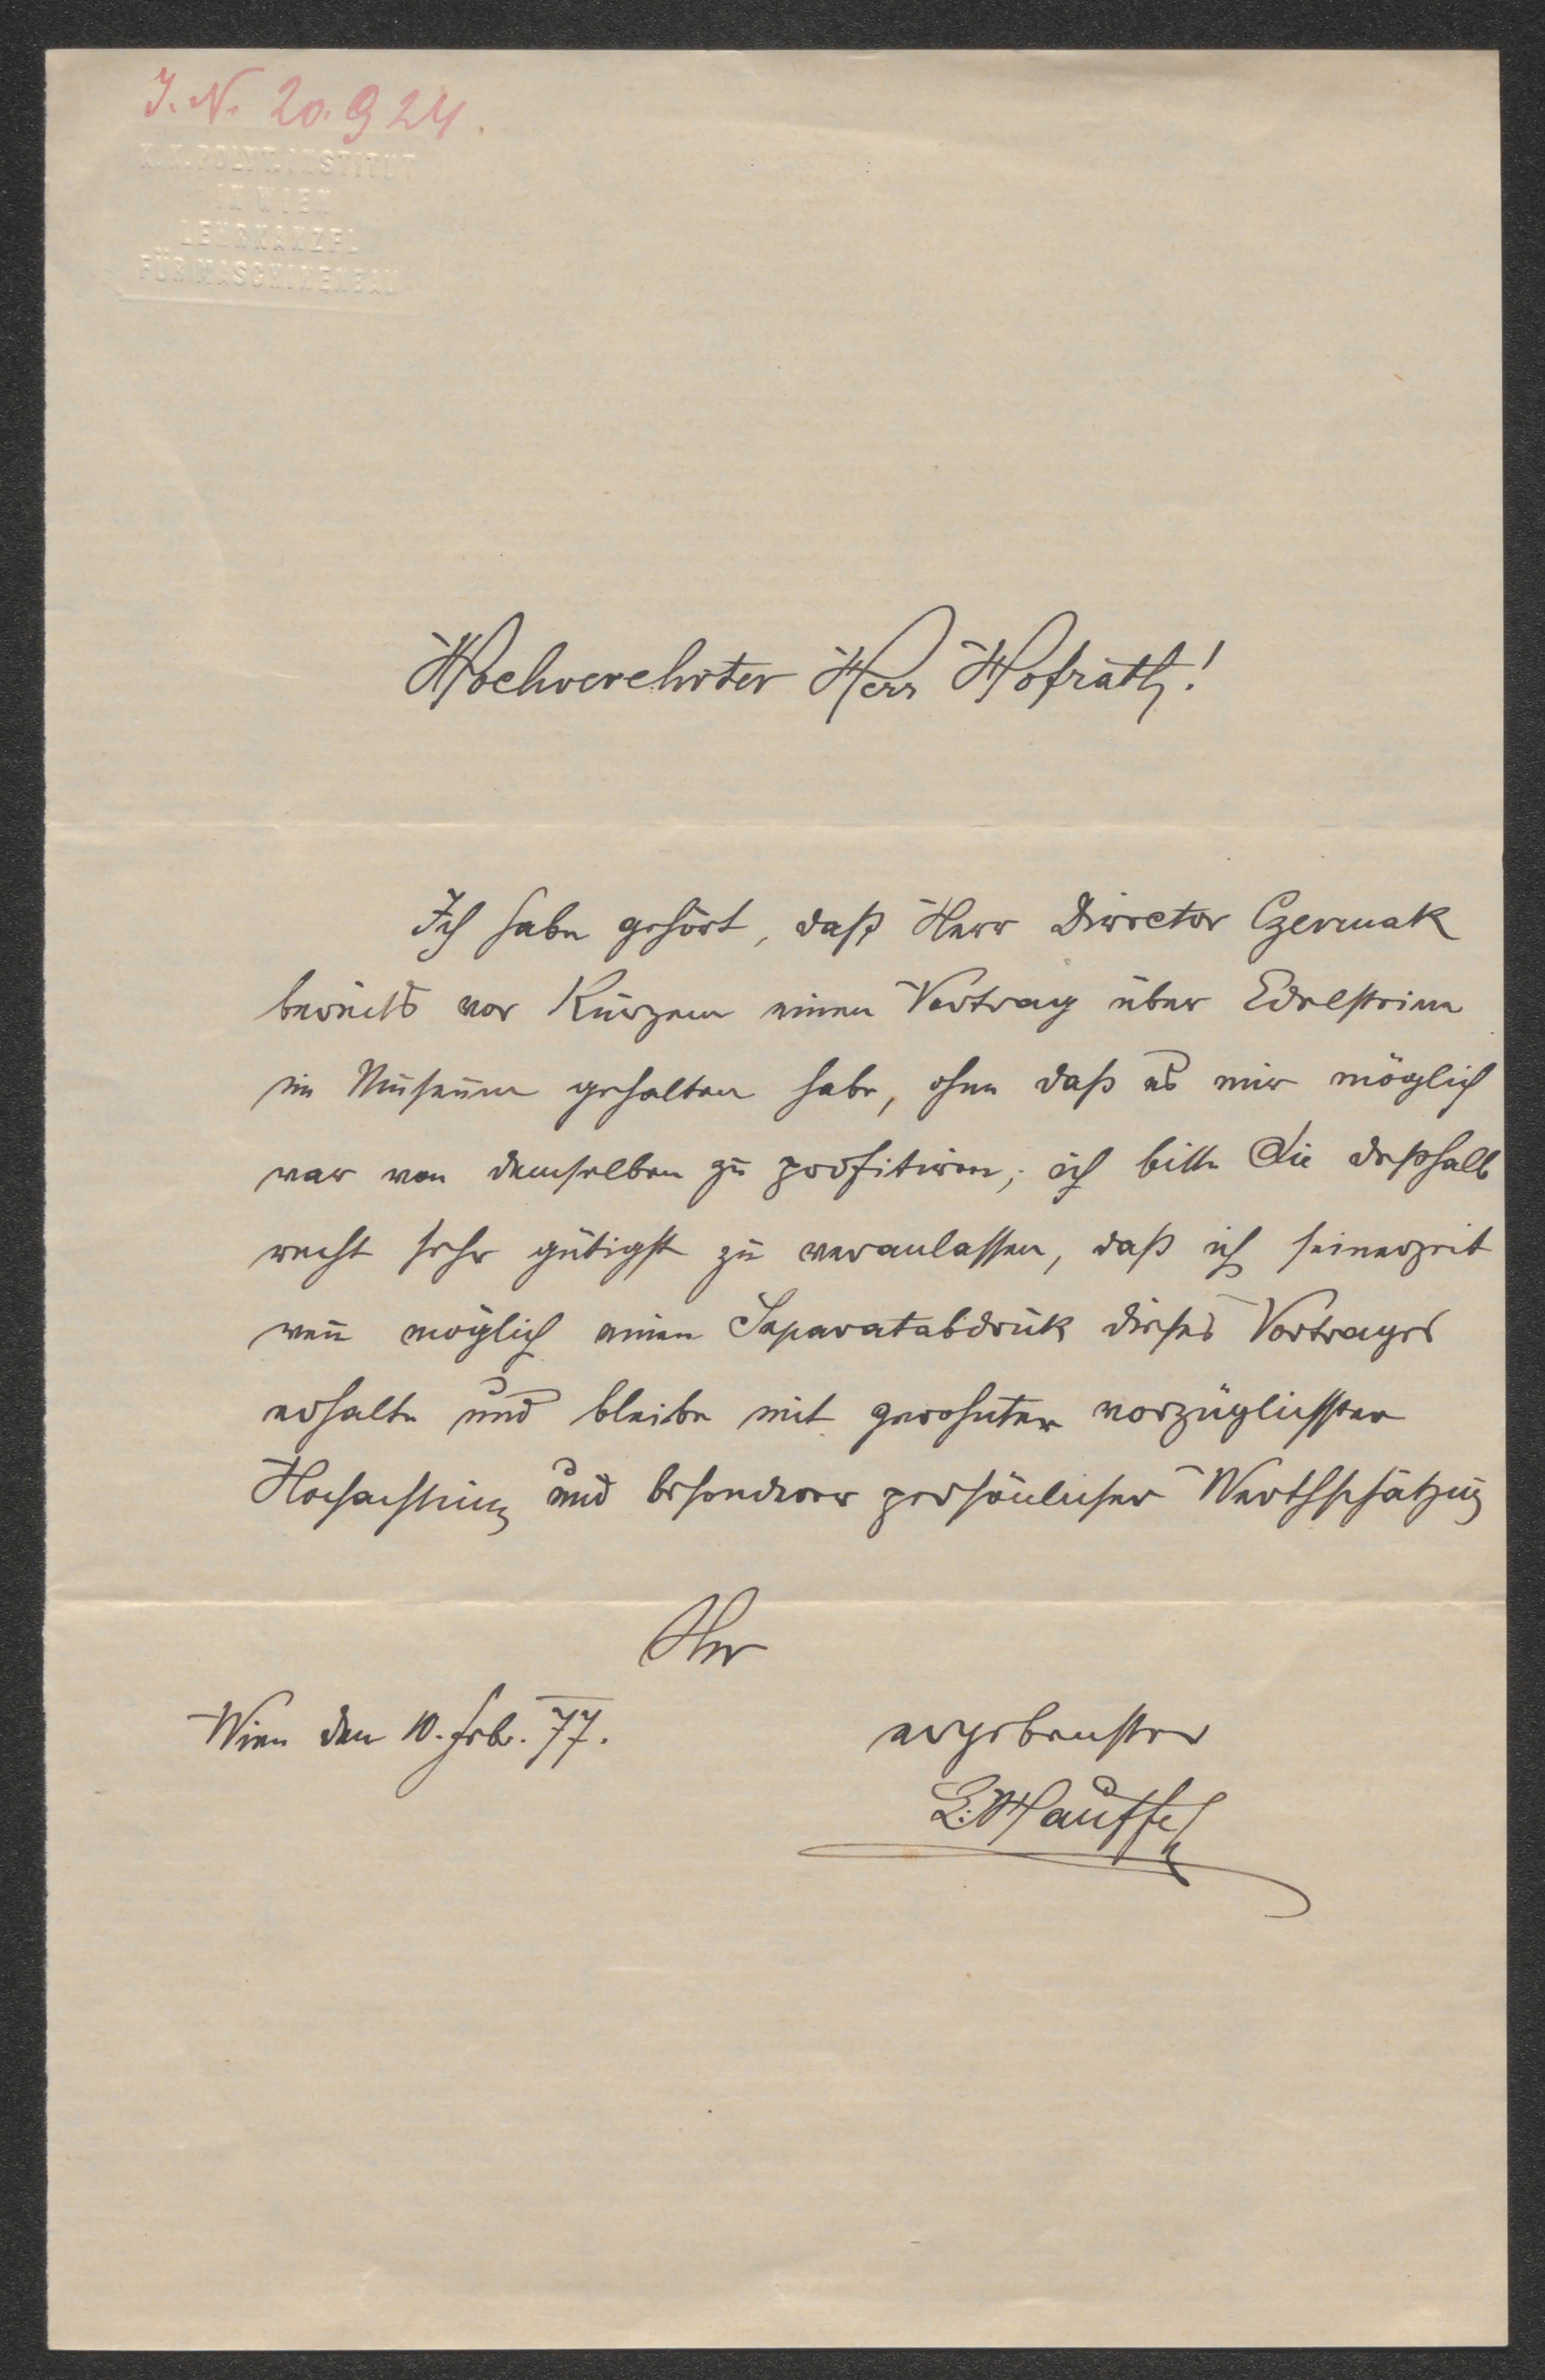 I. N. 20.924.
K. K. POLYT. INSTITUT
IN WIEN
LEHRKANZEL
FÜR MASCHINENBAU
Hochverehrter Herr Hofrath!
Ich habe gehört, daß Herr Director Czermak
bereits vor Kurzem einen Vortrag über Edelsteine
im Museum gehalten habe, ohne daß es mir möglich
war von demselben zu profitiren; ich bitte Sie deßhalb
recht sehr gütigst zu veranlassen, daß ich seinerzeit
wen̄ möglich einen Separatabdruk dieses Vortrages
erhalte und bleibe mit gewohnter vorzüglichster
Hochachtung und besonderer persönlicher Werthschätzung
Ihr
Wien den 10. Febr. 77.
ergebenster
L. Hauffe